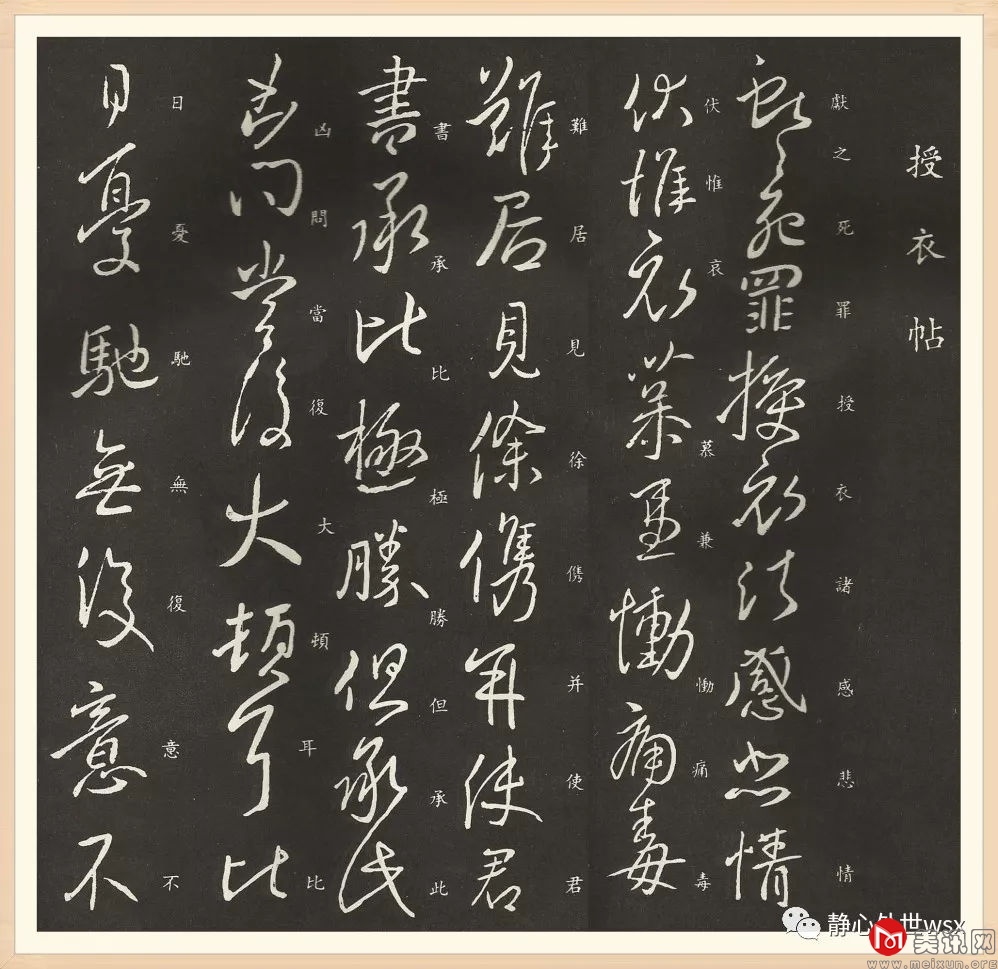 授衣帖
獻之死罪授衣諸感悲情
伏惟哀慕兼慟痛毒
難居見徐儁并使君
書承比極勝但承此
凶問當復大頓耳比
日憂馳無復意不
静心处世wsx
美讯网
www.meixun.org